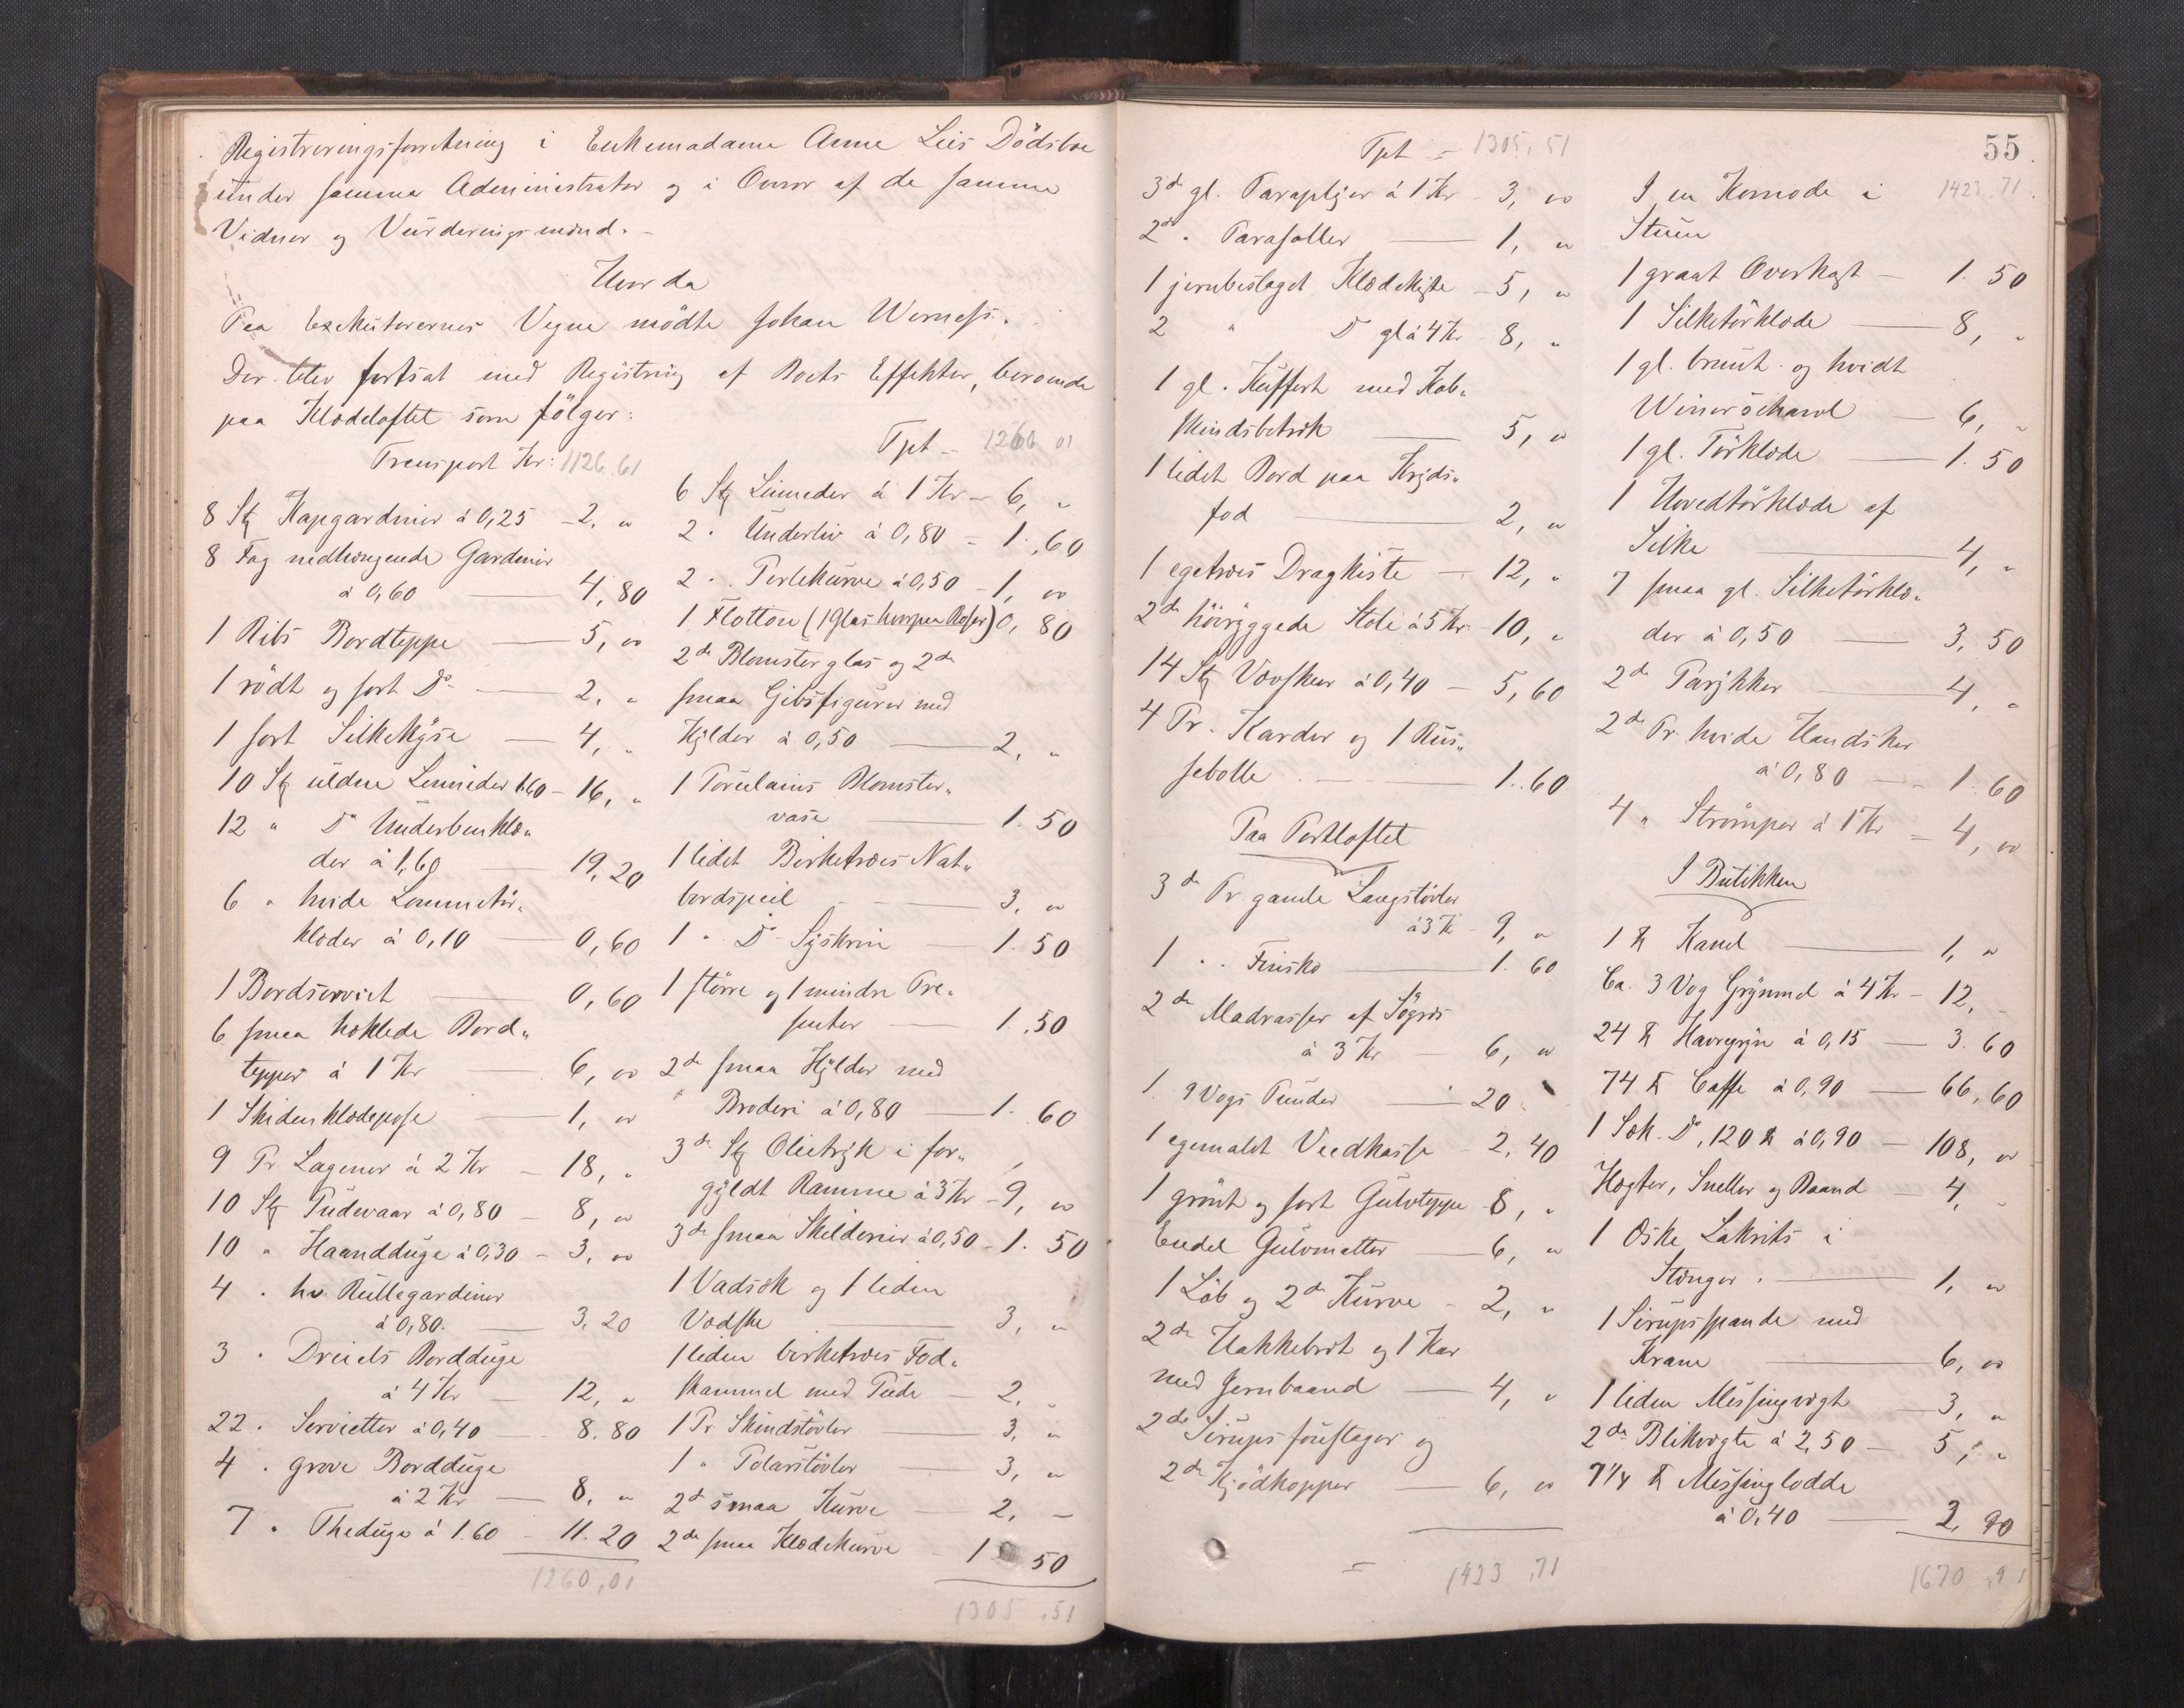 Registreringsforretning i Enkemadame Anne Leis Dödsboe
under samme Administrator og i Overv. af de samme
Vidner og Vurderingsmænd. -
Hvorda
Paa Exekutorernes Vegne mödte Johan Werness.
Der blev fortsat med Registring af Boets Effekter, beroende
paa Klædeloftet som fölger:
Transport Kr: 1126.61
8 Stk Kapgardiner á 0,25 - 2, "
8 Fag nedhængende Gardiner
á 0,60 — 4,80
1 Ribs Bordteppe — 5, "
1 rödt og sort Do — 2, "
1 sort Silkekyse — 4, "
10 Stk uldne Linneder 1.60 - 16, "
12 " Do Underbenklæ„
der á 1,60 — 19,20
6 " hvide Lommetör„
klæder á 0,10 — 0,60
1 Bordserviet — 0,60
6 smaa hæklede Bord„
tepper á 1 Kr — 6, "
1 Skidenklædepose — 1, "
9 Pr Lagener á 2 Kr — 18, "
10 Stk Pudevaar á 0,80 — 8, "
10 " Haandduge á 0,30 - 3, "
4 " hv. Rullegardiner
á 0,80. — 3,20
3 " Dreiels Bordduge
á 4 Kr — 12, "
22 " Servietter á 0,40 — 8.80
4 " grove Bordduge
á 2 Kr — 8, "
7 " Theduge á 1.60 - 11.20
1260,01
Tpt - 1260 01
6 Stk Linneder á 1 Kr - 6, "
2 " Underliv á 0,80 - 1.,60
2 " Perlekurve á 0,50 - 1, "
1 Flottön (1 Glas hvorpaa Roser) 0, 80
2de Blomsterglas og 2de
smaa Gibsfigurer med
Hylder á 0,50 — 2, "
1 Porcelains Blomster„
vase — 1.50
1 lidet Birketræes Nat„
bordspeil — 3, "
1 " Do Syskrin — 1.50
1 större og 1 mindre Pre„
senter — 1.,50
2de smaa Hylder med
Broderi á 0,80 — 1.60
3de Stk Olietryk i for„
gyldt Ramme á 3 Kr - 9, "
3de smaa Skilderier á 0,50 - 1. 50
1 Vadsæk og 1 liden
Vadske — 3, "
1 liden birketræes Fod„
skammel med Pude — 2, "
1 Pr Skindstövler — 3, "
1 " Polarstövler — 3, "
2de smaa Kurve — 2, -
2de smaa Klædekurve 1 50
1305,51
Tpt - 1305,51
3de gl. Paraplyer á 1 Kr - 3, "
2de " Parasoller — 1, "
1 jernbeslaget Klædekiste - 5, "
2 " Do gl á 4 Kr - 8, "
1 gl. Kuffert med Kob„
skindsbetræk — 5, "
1 lidet Bord paa Kryds„
fod — 2, "
1 egetræes Dragkiste — 12, "
2de höiryggede Stole á 5 Kr - 10, "
14 Stk Vævskeer á 0,40 — 5,60
4 Pr. Karder og 1 Rus„
sebolle — 1.60
Paa Portloftet
3de Pr gamle Langstövler
á 3 Kr - 9, "
1 " " Finsko — 1.60
2de Madrasser af Sögræs
á 3 Kr — 6, "
1. 9 Vogs Punder — 20 "
1 egemalet Veedkasse - 2,40
1 grönt og sort Gulvteppe - 8, "
Endel Gulvmatter — 6, "
1 Löb og 2de Kurve - 2, "
2de Hakkebræt og 1 Kar
med Jernbaand — 4, "
2de Sirupsfustager og
2de Kjödkopper — 6, "
= 1423,71
55.
1423.71
I en Komode i
Stuen
1 graat Overkast — 1.50
1 Silketörklæde — 8, "
1 gl. brunt og hvidt
Winerschawl — 6, "
1 gl. Törklæde — 1.50
1 Hovedtörklæde af
Silke — 4, "
7 smaa gl. Silketörklæ„
der á 0,50 — 3,50
2de Parykker — 4, "
2de Pr. hvide Handsker
á 0,80 — 1.60
4 " Strömper á 1 Kr - 4, "
I Butikken
1 ℔ Kanel — 1, "
Ca. 3 Vog Grynmel á 4 Kr - 12, -
24 ℔ Havregryn á 0,15 — 3.60
74 ℔ Caffe á 0,90 — 66,60
1 Sæk Do, 120 ℔ á 0,90 — 108, "
Hægter, Sneller og Baand — 4, -
1 Æske Lakrits i
Stænger. — 1, "
1 Sirupsspande med
Krane — 6, "
1 liden Messingvægt — 3, "
2de Blikvægte á 2,50 — 5, "
7 1/4 ℔ Messinglodde
á 0,40 — 2,90
1670,91